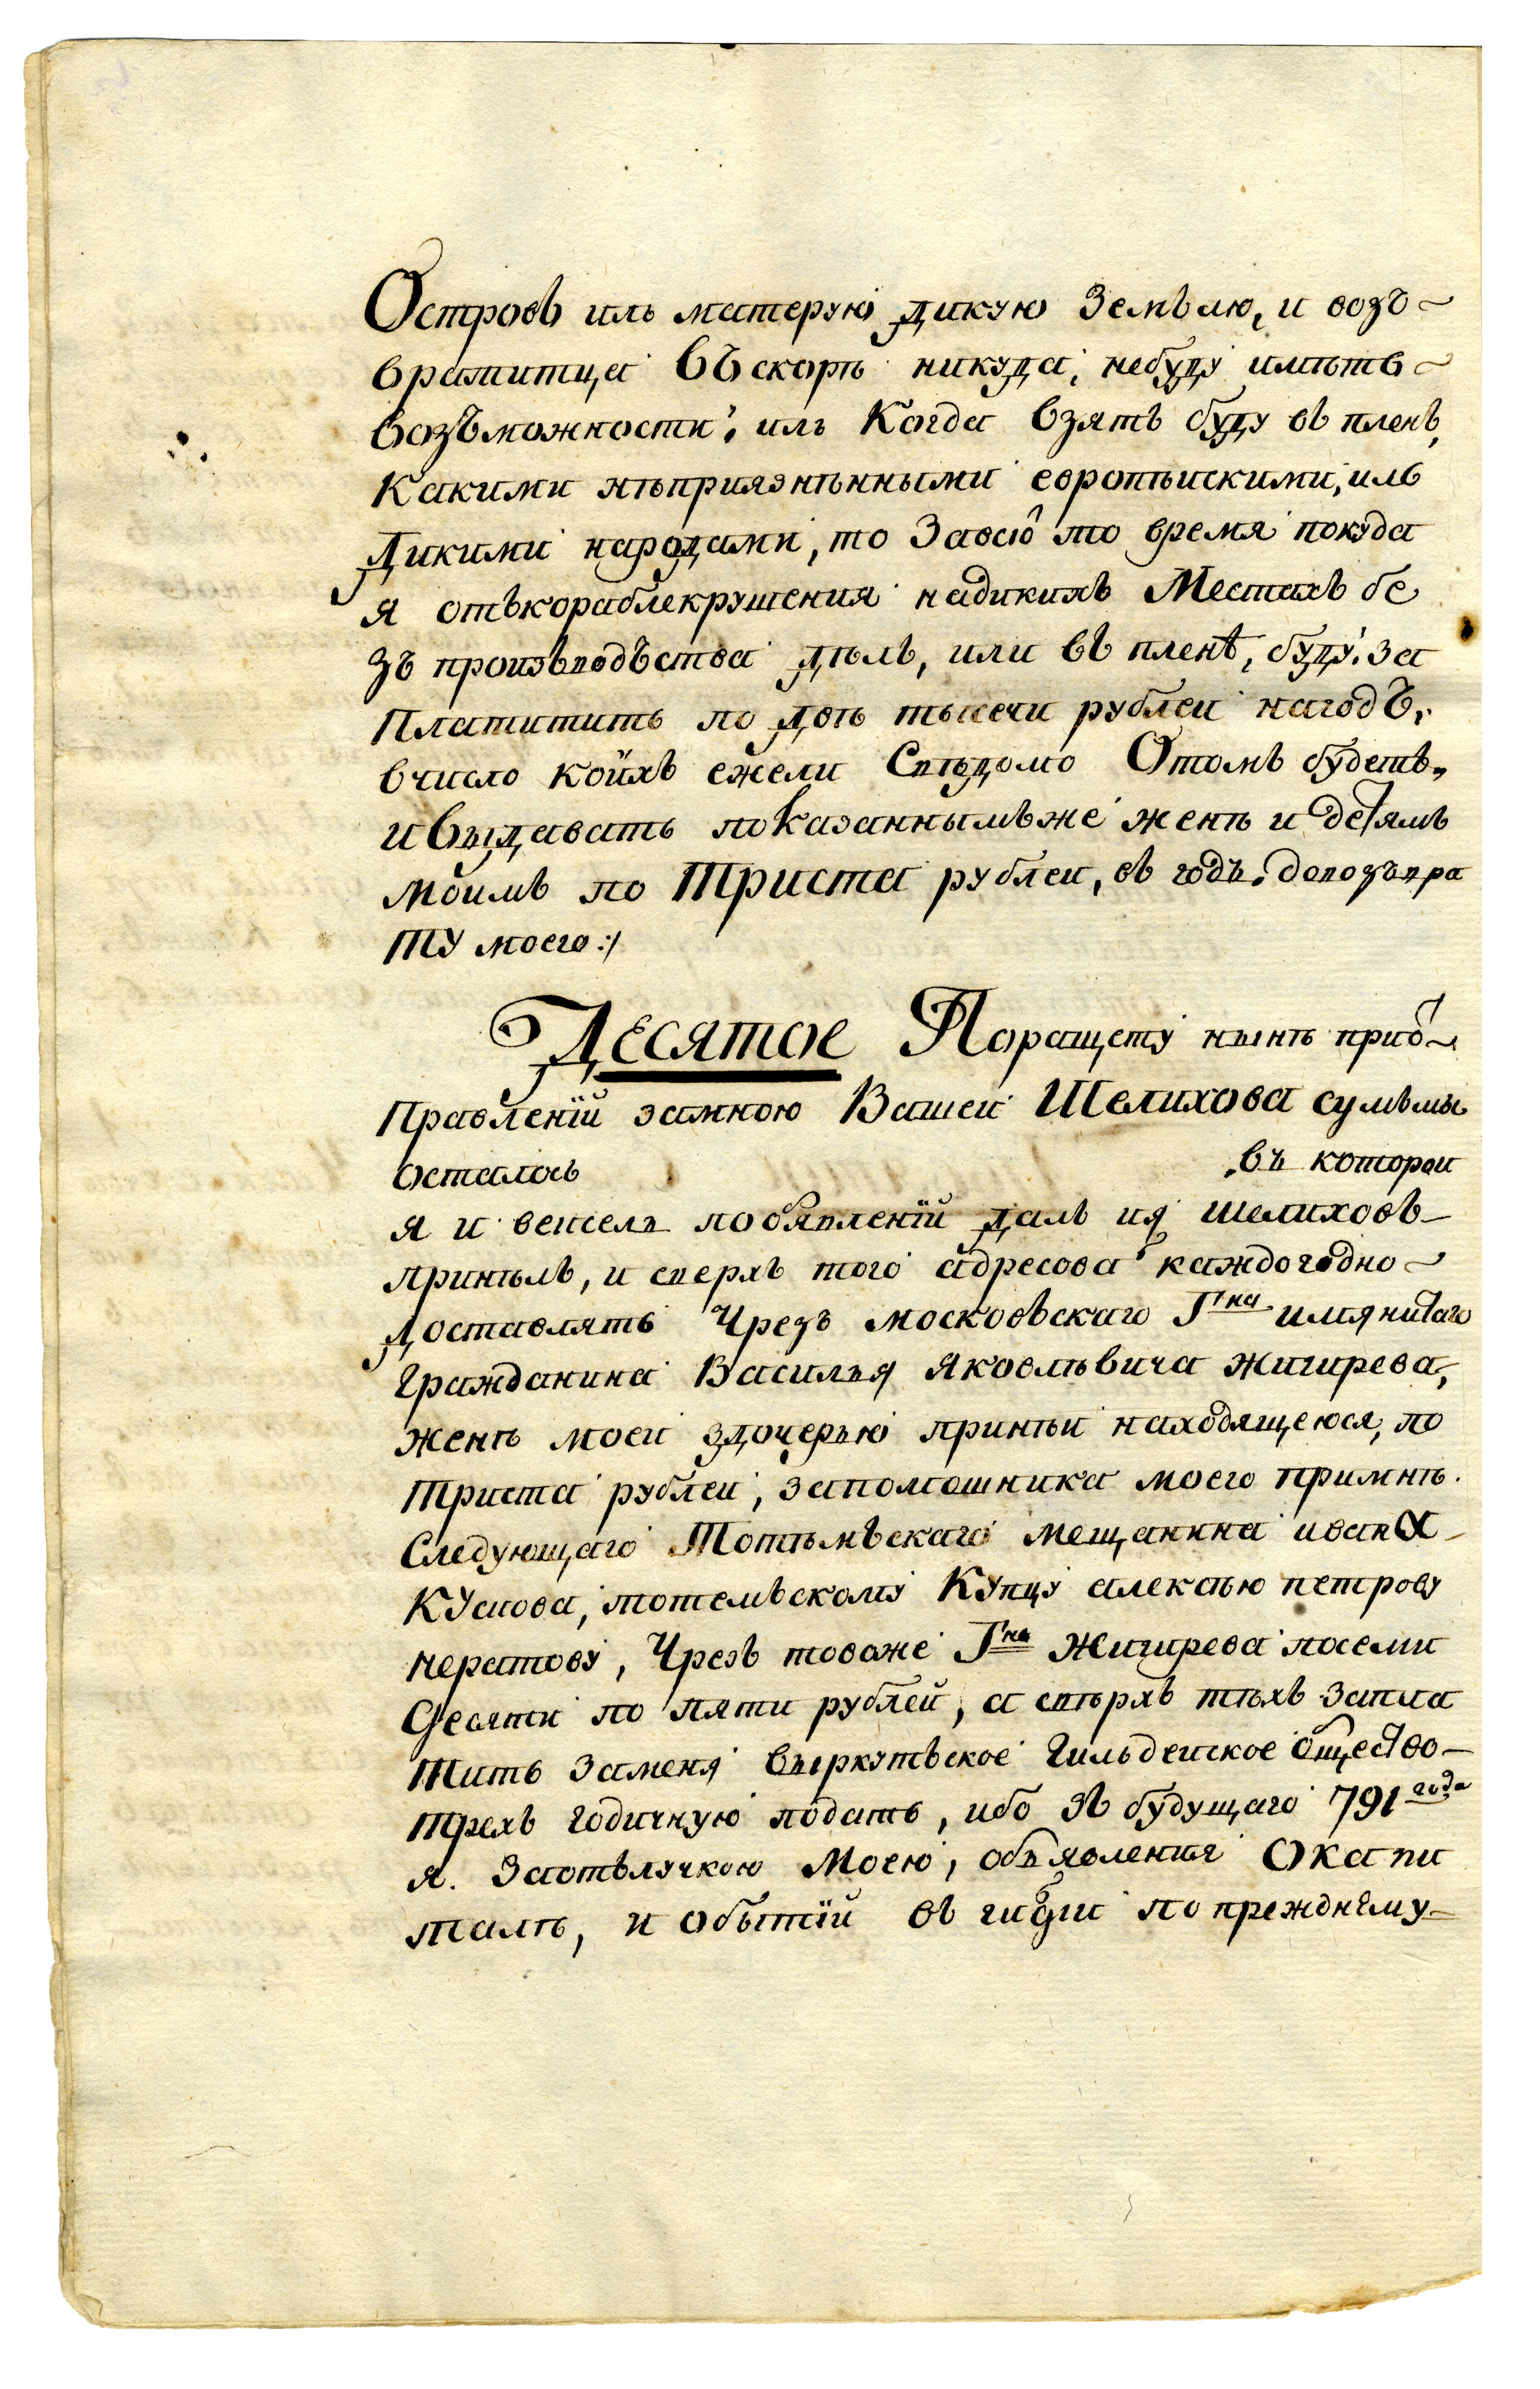 Островъ иль матерую дикую Землю, и возъ~
вратитца въскоре никуда, небуду имѣть~
возъможности, иль Когда взятъ буду въ пленъ,
Какими нѣприязнѣнными европѣискими, иль
Дикими народами, то Завсю то время покуда
я отъкораблекрушения надикихъ Местахъ бе
зъ произъводъства дѣлъ, или въ пленѣ, буду: за
платитить по двѣ тысечи рублеи нагодъ,
вчисло коихъ ежели Свѣдомо Отомъ будетъ,,
и выдавать показаннымъже женѣ и детямъ
моимъ по Триста рублеи, въ годъ. довозъвра
ту моего:/
Десятое Поращету нынѣ приб~
Правлении замною Вашеи Шелихова сумъмы
осталось ,въ которои
я и вексель пообявлении далъ ия шелиховъ-
принялъ, и сверхъ того адресова каждогодно~
доставлять Чрезъ московъскаго Гна имянитаго
гражданина Василья Яковлѣвича жигирева,
женѣ моеи здочерью принѣи находящеюся, по
триста рублеи, запомошника моего примнѣ.
Следующаго Тотѣмъскаго мещанина ивана-
Кускова, тотемъскому Купцу алексѣю петрову
нератову, Чрезъ тогоже Гна Жигирева посеми
десяти по пяти рублей, а свѣрхъ тѣхъ запла
тить заменя выркутъское гильдеиское общество-
трехъ годичную подать, ибо въ будущаго 791 года
я. Заотълучкою Моею, объявления Окапи
талѣ, и обытии въ гилдии по прежднему-